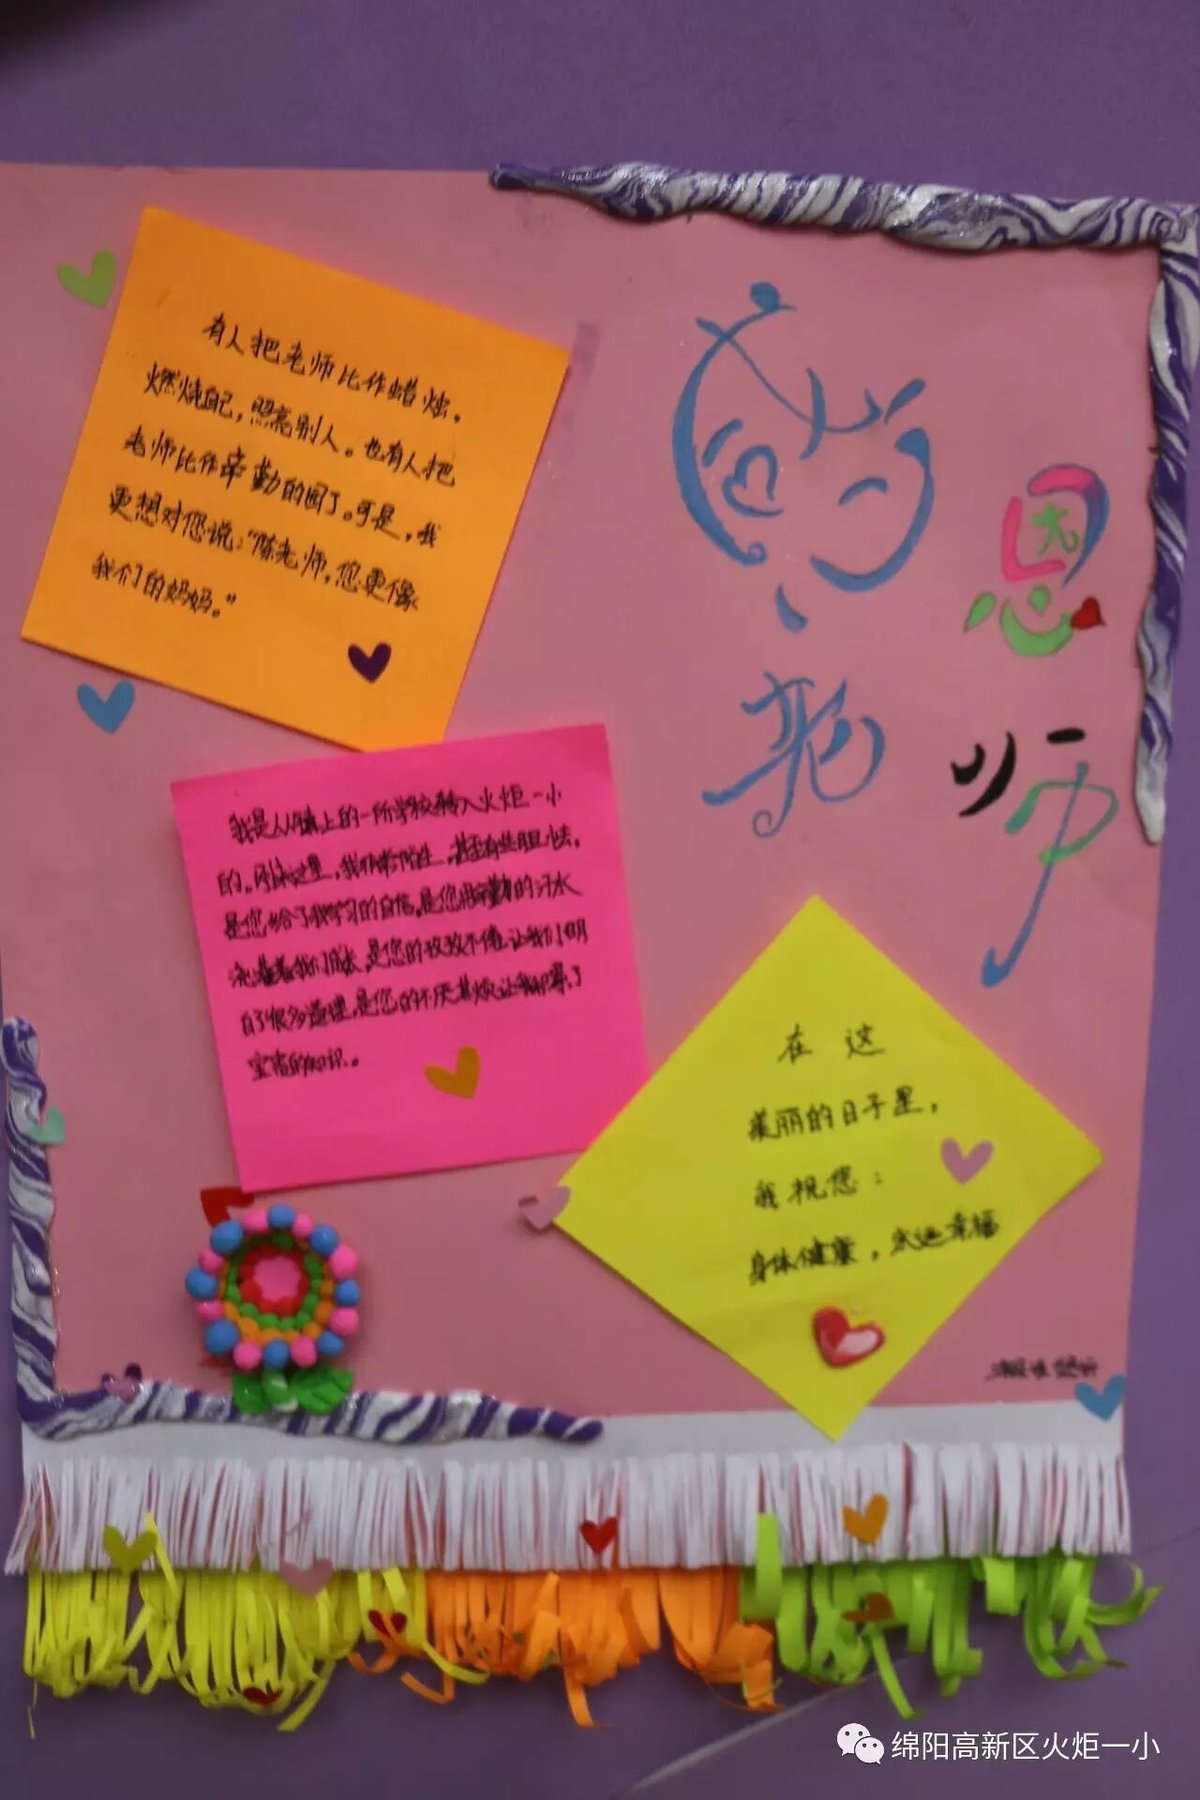 感恩
老师
有人把老师比作蜡烛，
燃烧自己，照亮别人。也有人把
老师比作辛勤的园丁。可是，我
更想对您说：“陈老师，您更像
我们的妈妈。”
我是从镇上的一所学校转入火炬一小
的。刚来这里，我有些陌生，甚至有些胆怯。
是您给了我学习的自信，是您用辛勤的汗水
浇灌着我们成长，是您的孜孜不倦让我们明
白了很多道理，是您的不厌其烦让我们
宝贵的知识。
在这
美丽的日子里，
我祝您：
身体健康，永远幸福
绵阳高新区火炬一小